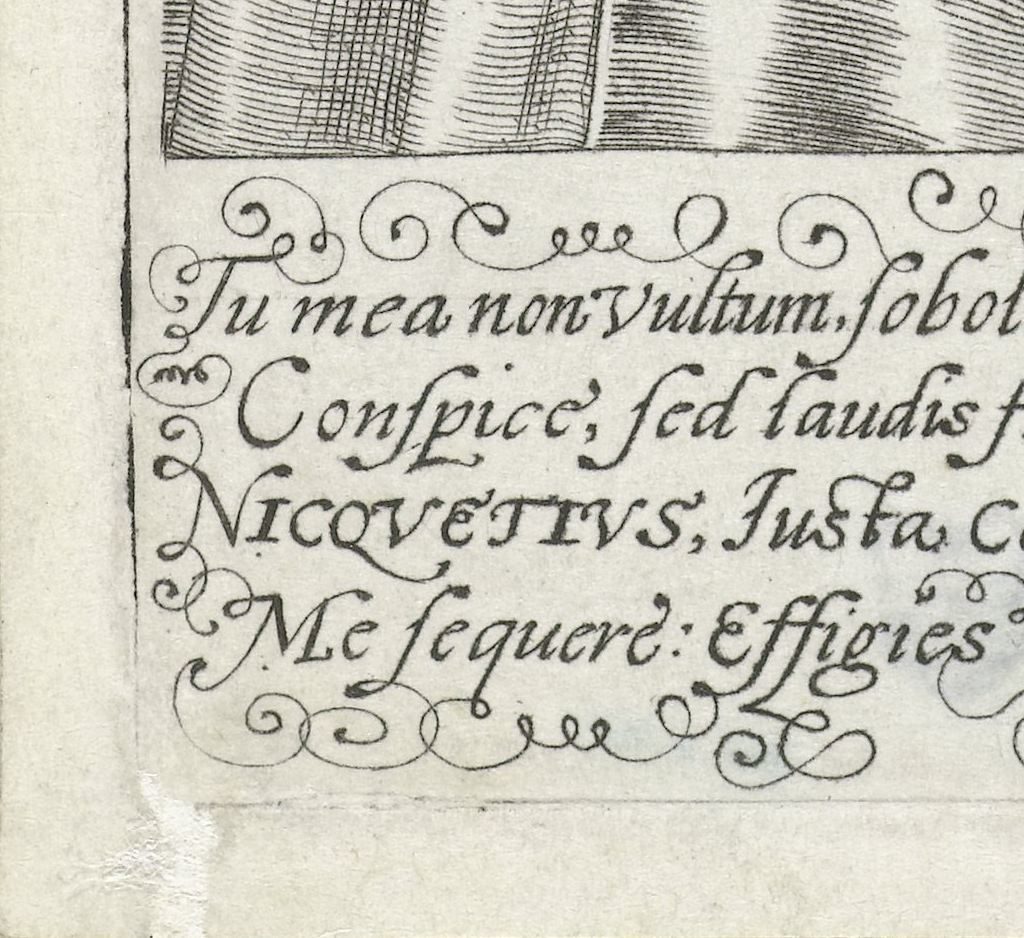 Tu mea non vultum, sobol
Conspice, sed laudis f
NICQVETIVS, Iusta, C
Me sequere: Effigies